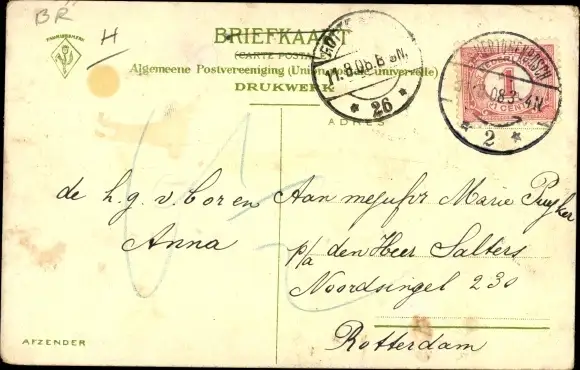 BR
H
BRIEFKAART
(CARTE POSTALE)
Algemeene Postvereeniging (Union postale universelle)
DRUKWERK
ADRES
11.8.08.8
26
1
CENT
2
de h.g. v. Cor en
Anna
Aan mejufvr Marie
p/a den Heer Salters
Noordsingel 230
Rotterdam
AFZENDER